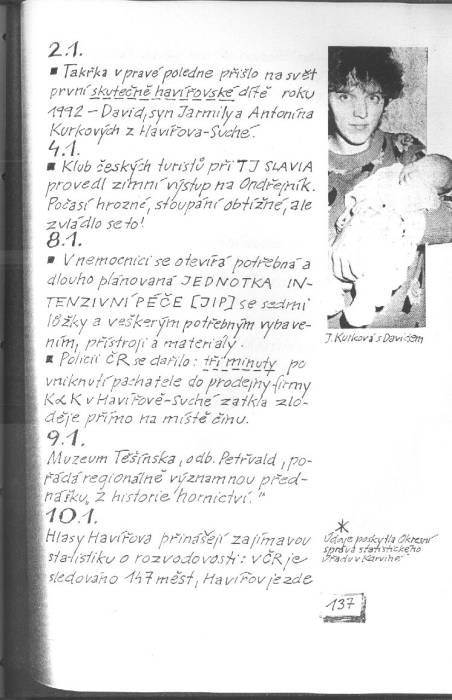 2.1.
▪ Takřka v pravé poledne přišlo na svět
první skutečně havířovské dítě roku
1992 – David, syn Jarmily a Antonína
Kurkových z Havířova-Suché.
4.1.
▪ Klub českých turistů při TJ SLAVIA
provedl zimní výstup na Ondřejník.
Počasí hrozné, stoupání obtížné, ale
zvládlo se to!
8.1.
▪ V nemocnici se otevírá potřebná a
dlouho plánovaná JEDNOTKA IN-
TENZIVNÍ PÉČE [JIP] se sedmi
lůžky a veškerým potřebným vybave-
ním, přístroji a materiály.
▪ Policii ČR se dařilo: tři minuty po
vniknutí pachatele do prodejny firmy
K&K v Havířově-Suché zatkla zlo-
děje přímo na místě činu.
9.1.
Muzeum Těšínska, odb. Petřvald, po-
řádá regionálně významnou před-
nášku „Z historie hornictví."
10.1.
Hlasy Havířova přinášejí zajímavou
statistiku o rozvodovosti: v ČR je
sledováno 147 měst, Havířov je zde
J. Kurková s Davidem
*
Údaje poskytla Okresní
správa statistického
úřadu v Karviné
137